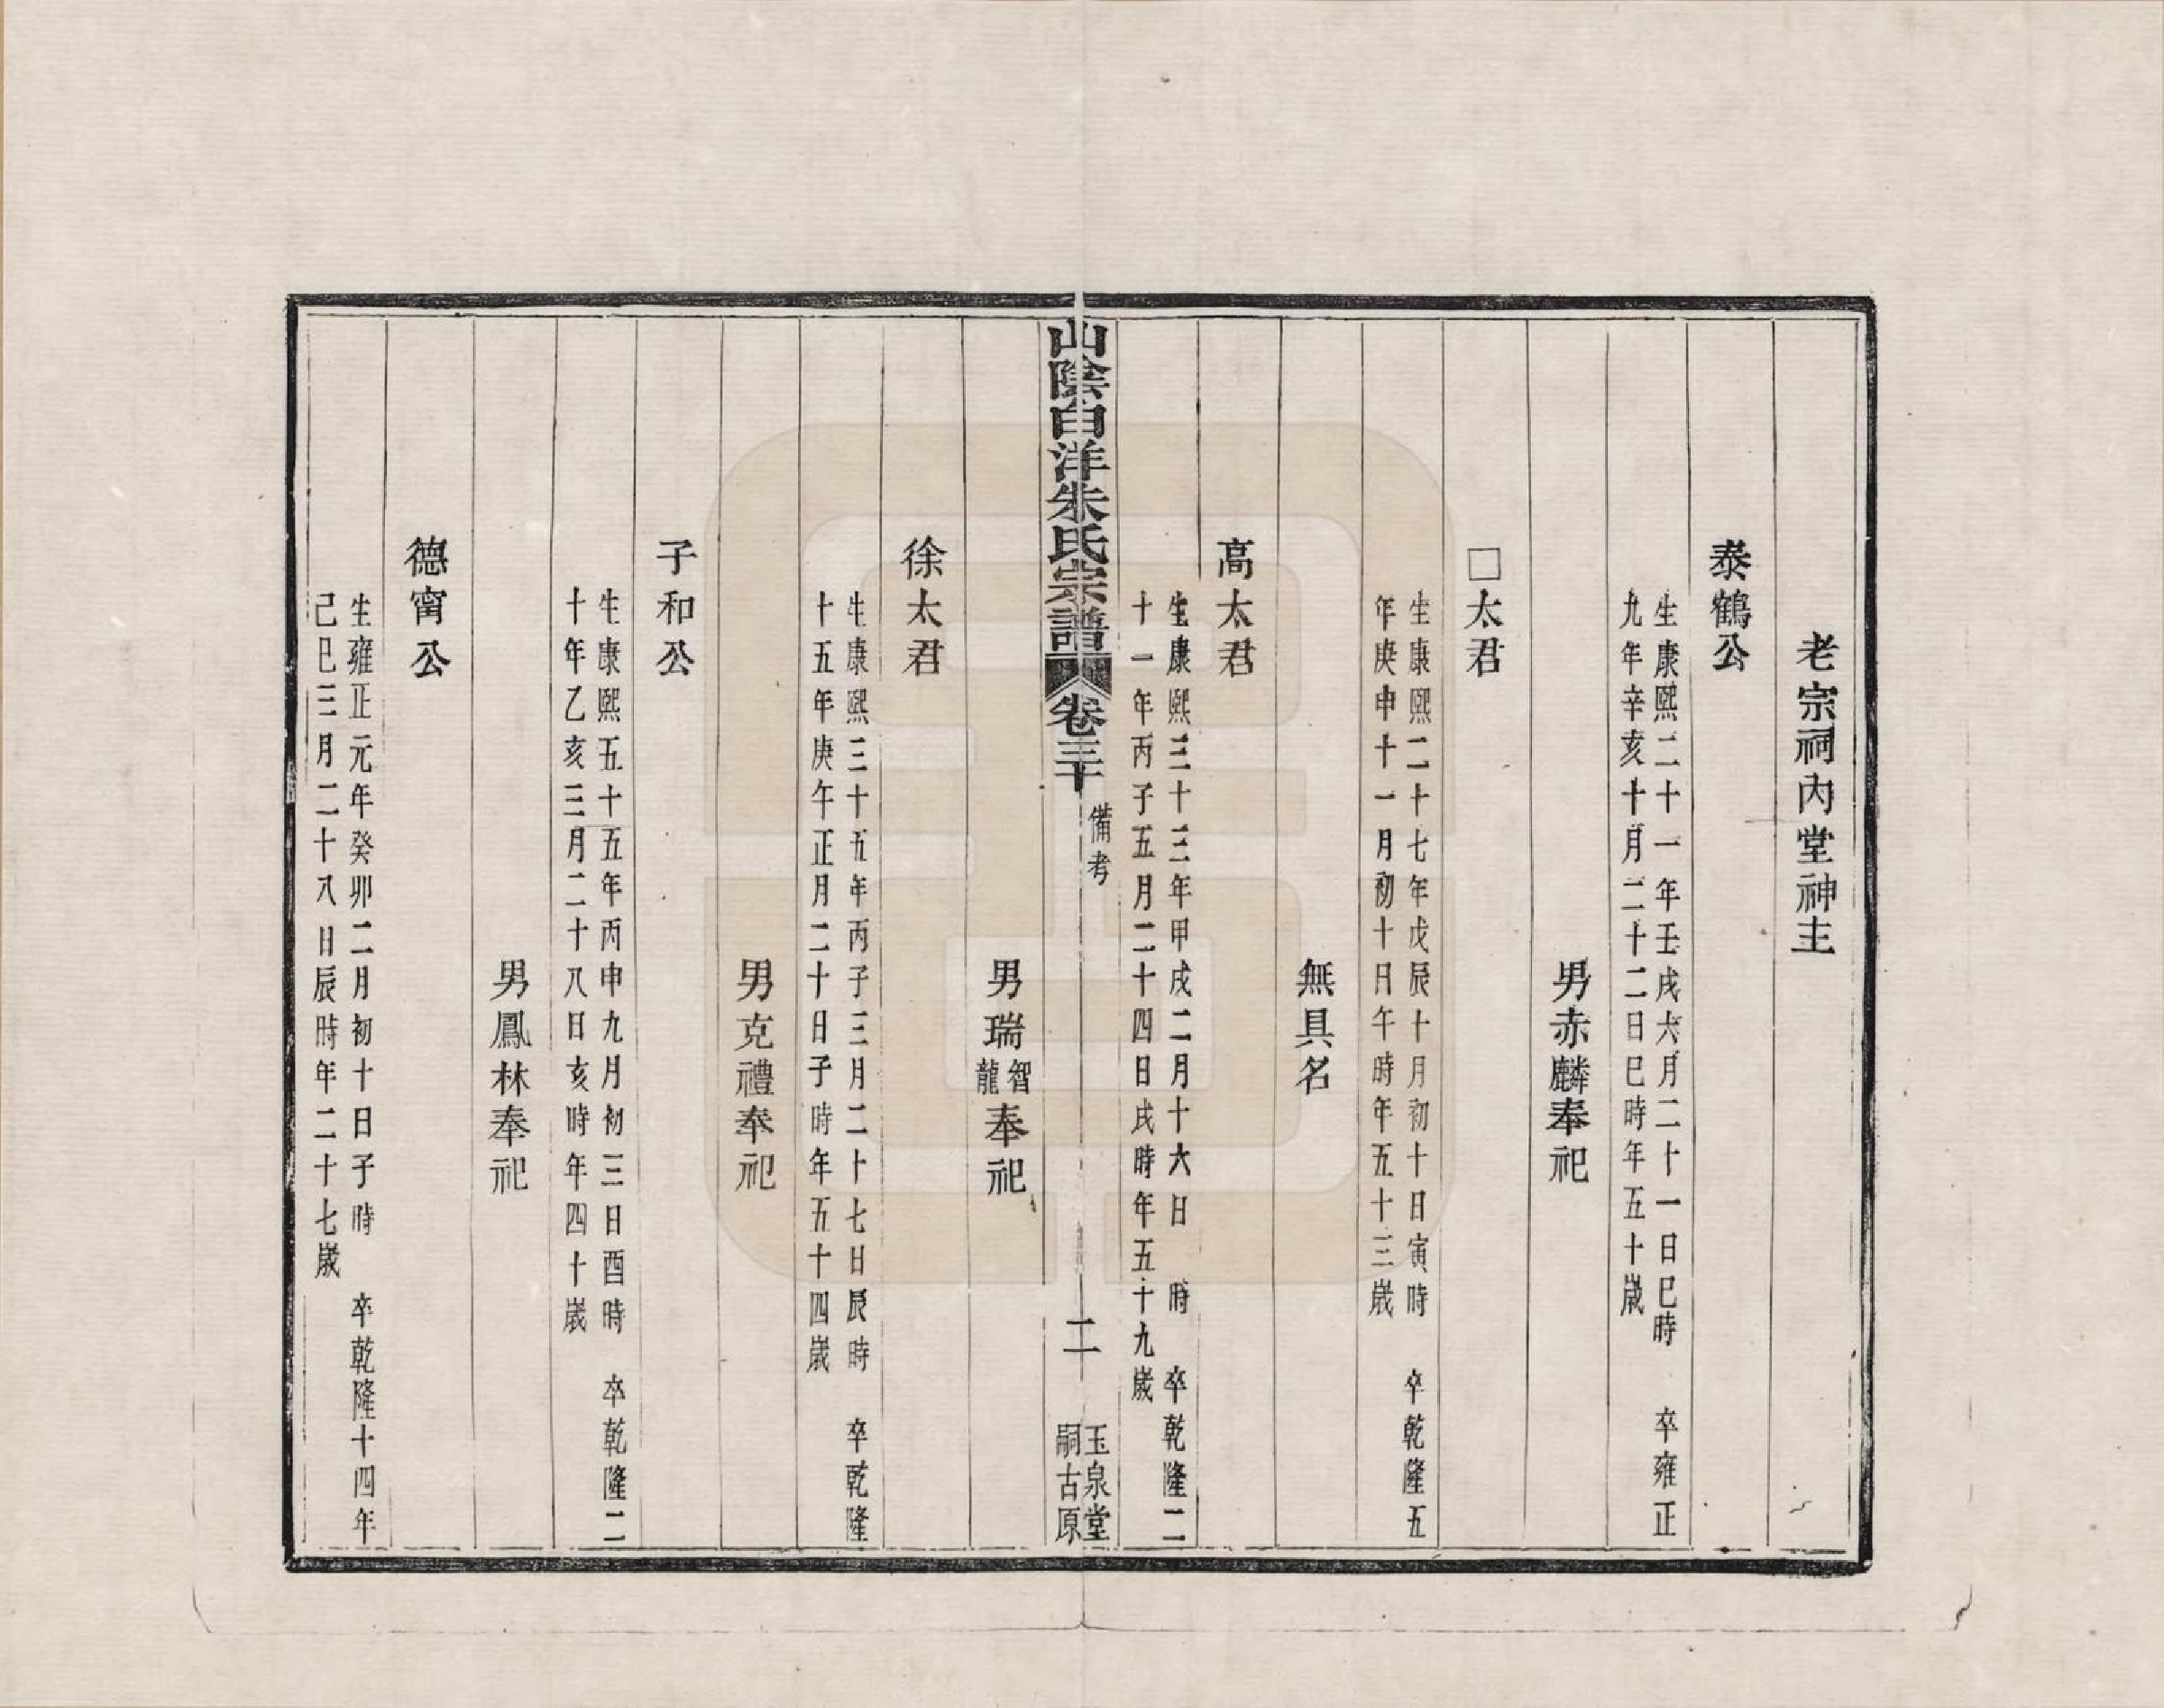 老宗祠內堂神主
泰鶴公
生康熙二十一年壬戌六月二十一日巳時 卒雍正
九年辛亥十月二十二日巳時年五十歲
男赤麟奉祀
□太君
生康熙二十七年戊辰十月初十日寅時 卒乾隆五
年庚申十一月初十日午時年五十三歲
無具名
高太君
生康熙三十三年甲戌二月十六日 時 卒乾隆二
十一年丙子五月二十四日戌時年五十九歲
山陰白洋朱氏宗譜 卷三十
備考
二
玉泉堂
嗣古原
男瑞智龍奉祀
徐太君
生康熙三十五年丙子三月二十七日辰時 卒乾隆
十五年庚午正月二十日子時年五十四歲
男克禮奉祀
子和公
生康熙五十五年丙申九月初三日酉時 卒乾隆二
十年乙亥三月二十八日亥時年四十歲
男鳳林奉祀
德甯公
生雍正元年癸卯二月初十日子時 卒乾隆十四年
己巳三月二十八日辰時年二十七歲